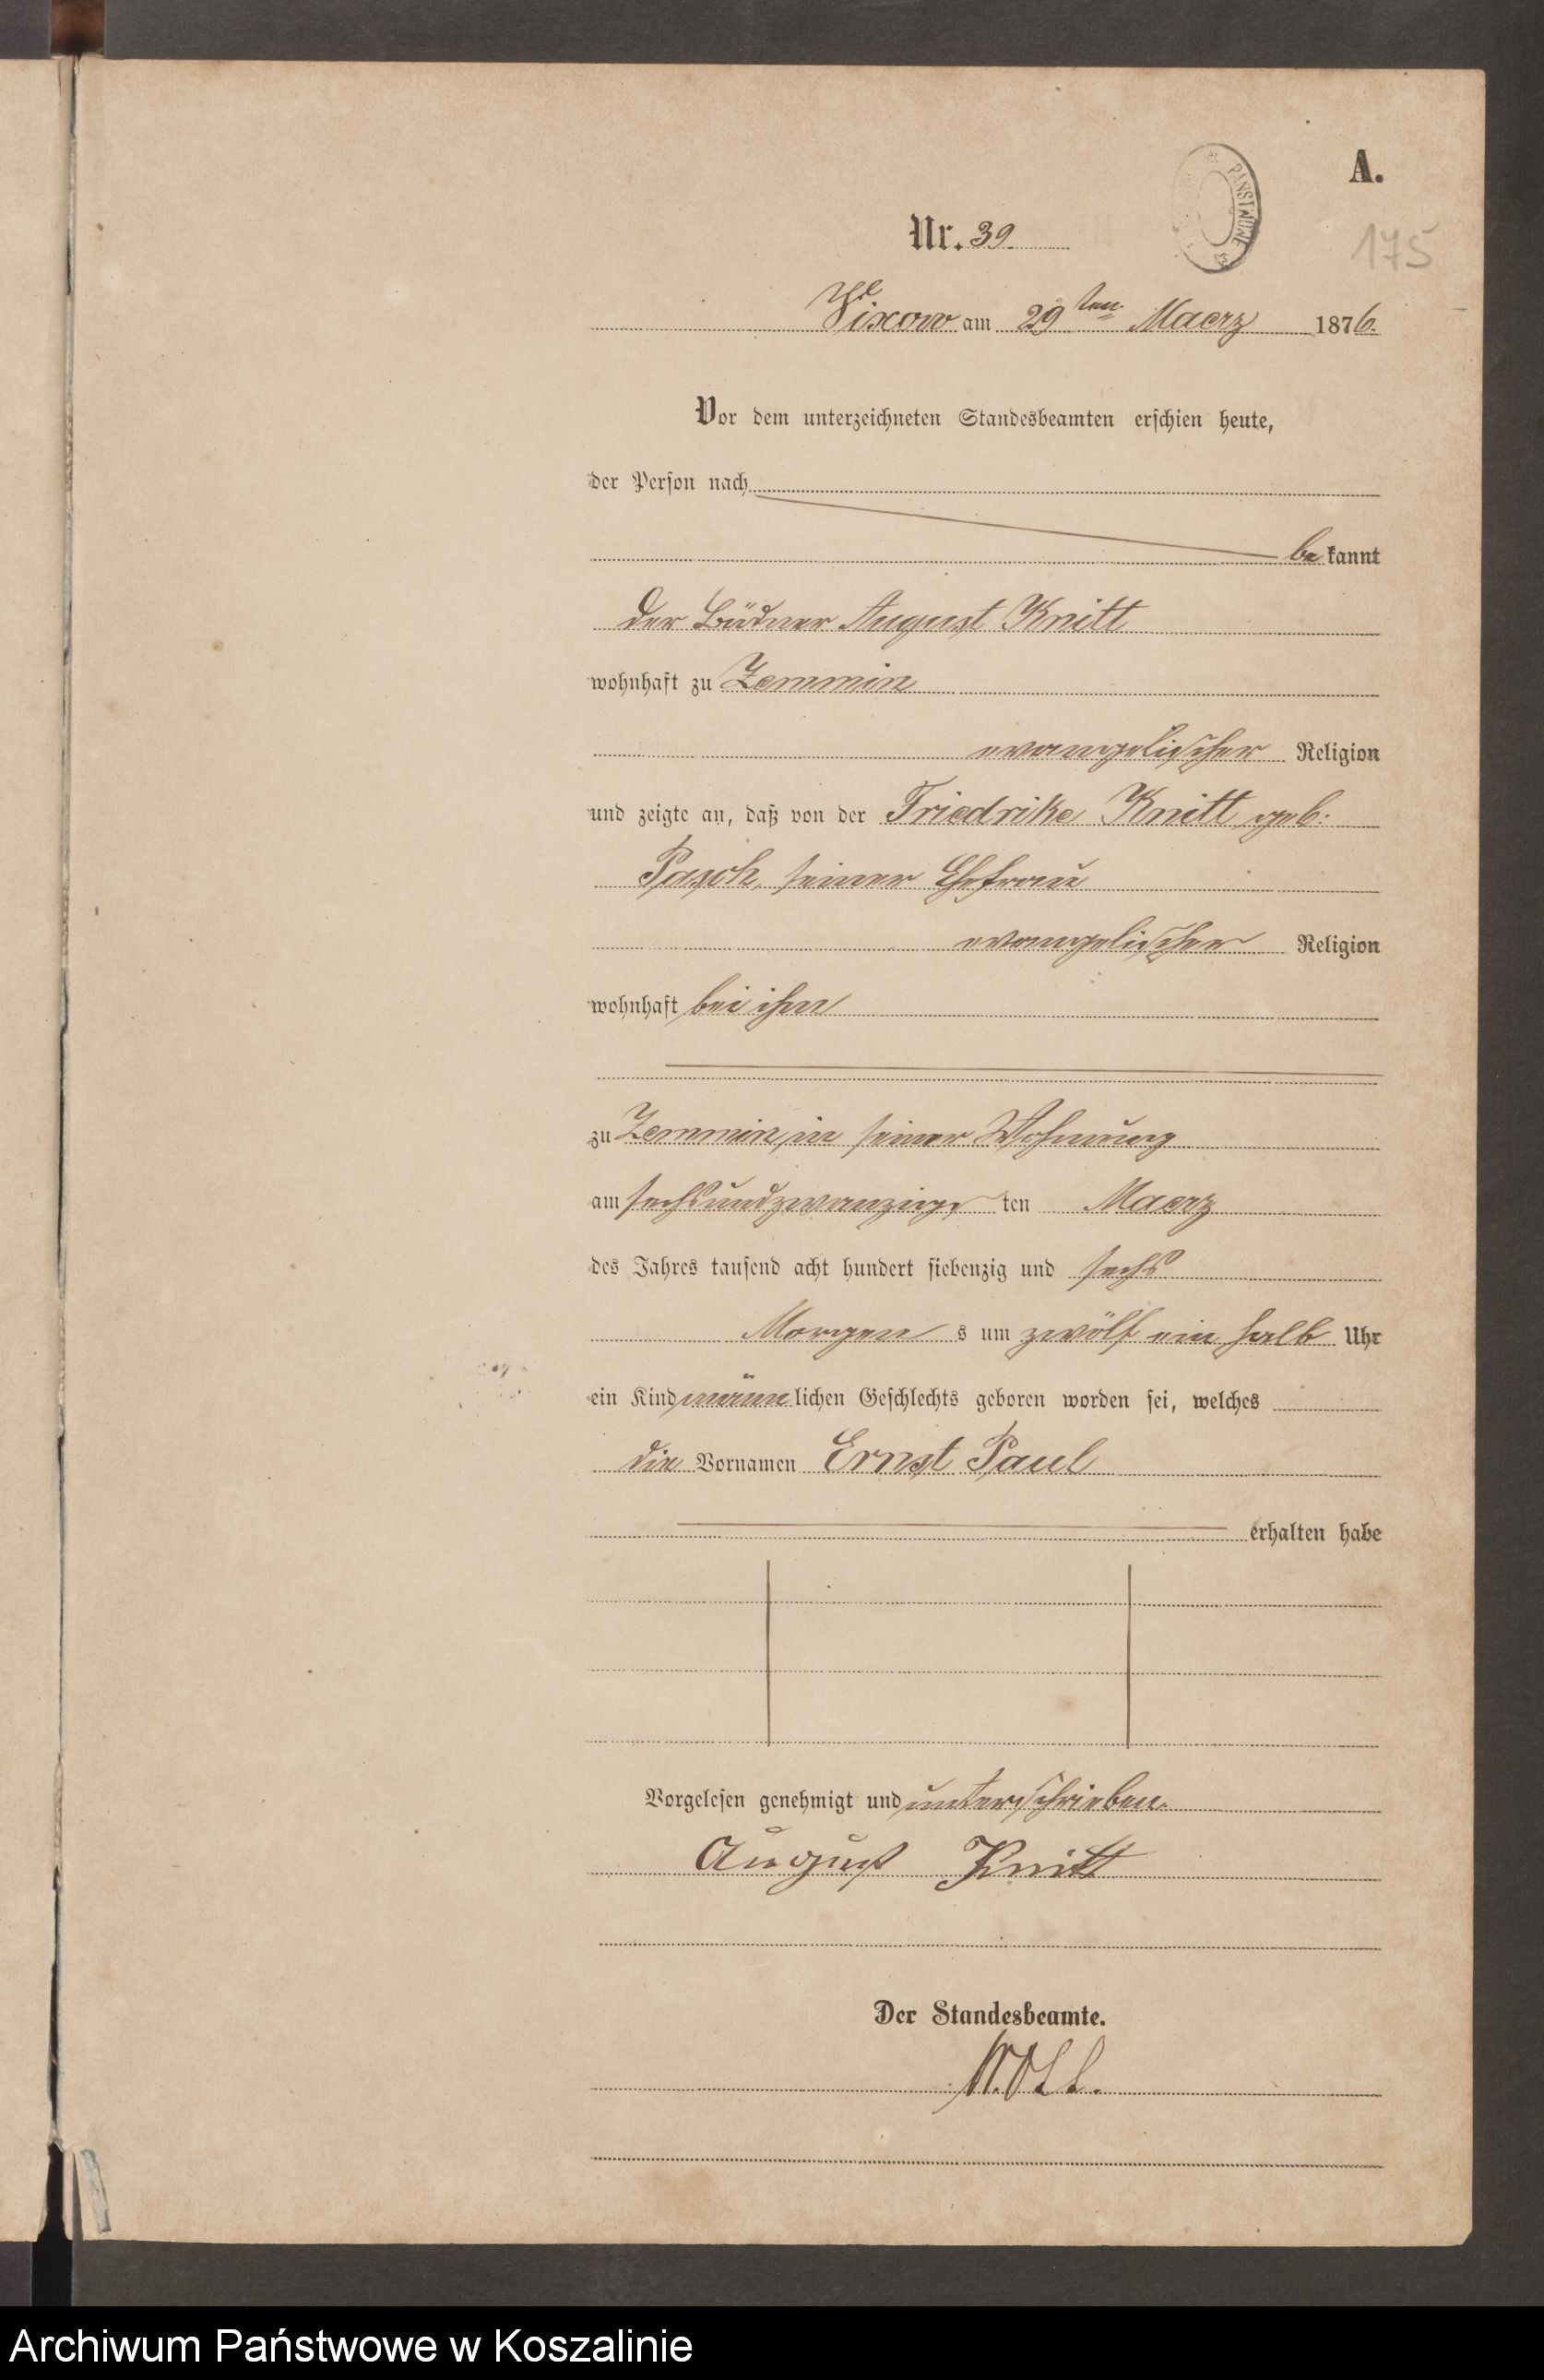 A.
PAŃSTWOWE
Nr. 39.
175
Wixow am 29ten Maerz 1876.
Vor dem unterzeichneten Standesbeamten erschien heute,
der Person nach
bekannt
der Büdner August Knitt
wohnhaft zu Zemmin
evangelischer Religion
und zeigte an, daß von der Friedrike Knitt geb.
Pasch, seiner Ehefrau
evangelischer Religion
wohnhaft bei ihm
zu Zemmin, in seiner Wohnung
am sechsundzwanzigsten Maerz
des Jahres tausend acht hundert siebenzig und sechs
Morgens um zwölf ein halb Uhr
ein Kind männlichen Geschlechts geboren worden sei, welches
die Vornamen Ernst Paul
erhalten habe
Vorgelesen genehmigt und unterschrieben.
August Knitt
Der Standesbeamte.
Archiwum Państwowe w Koszalinie